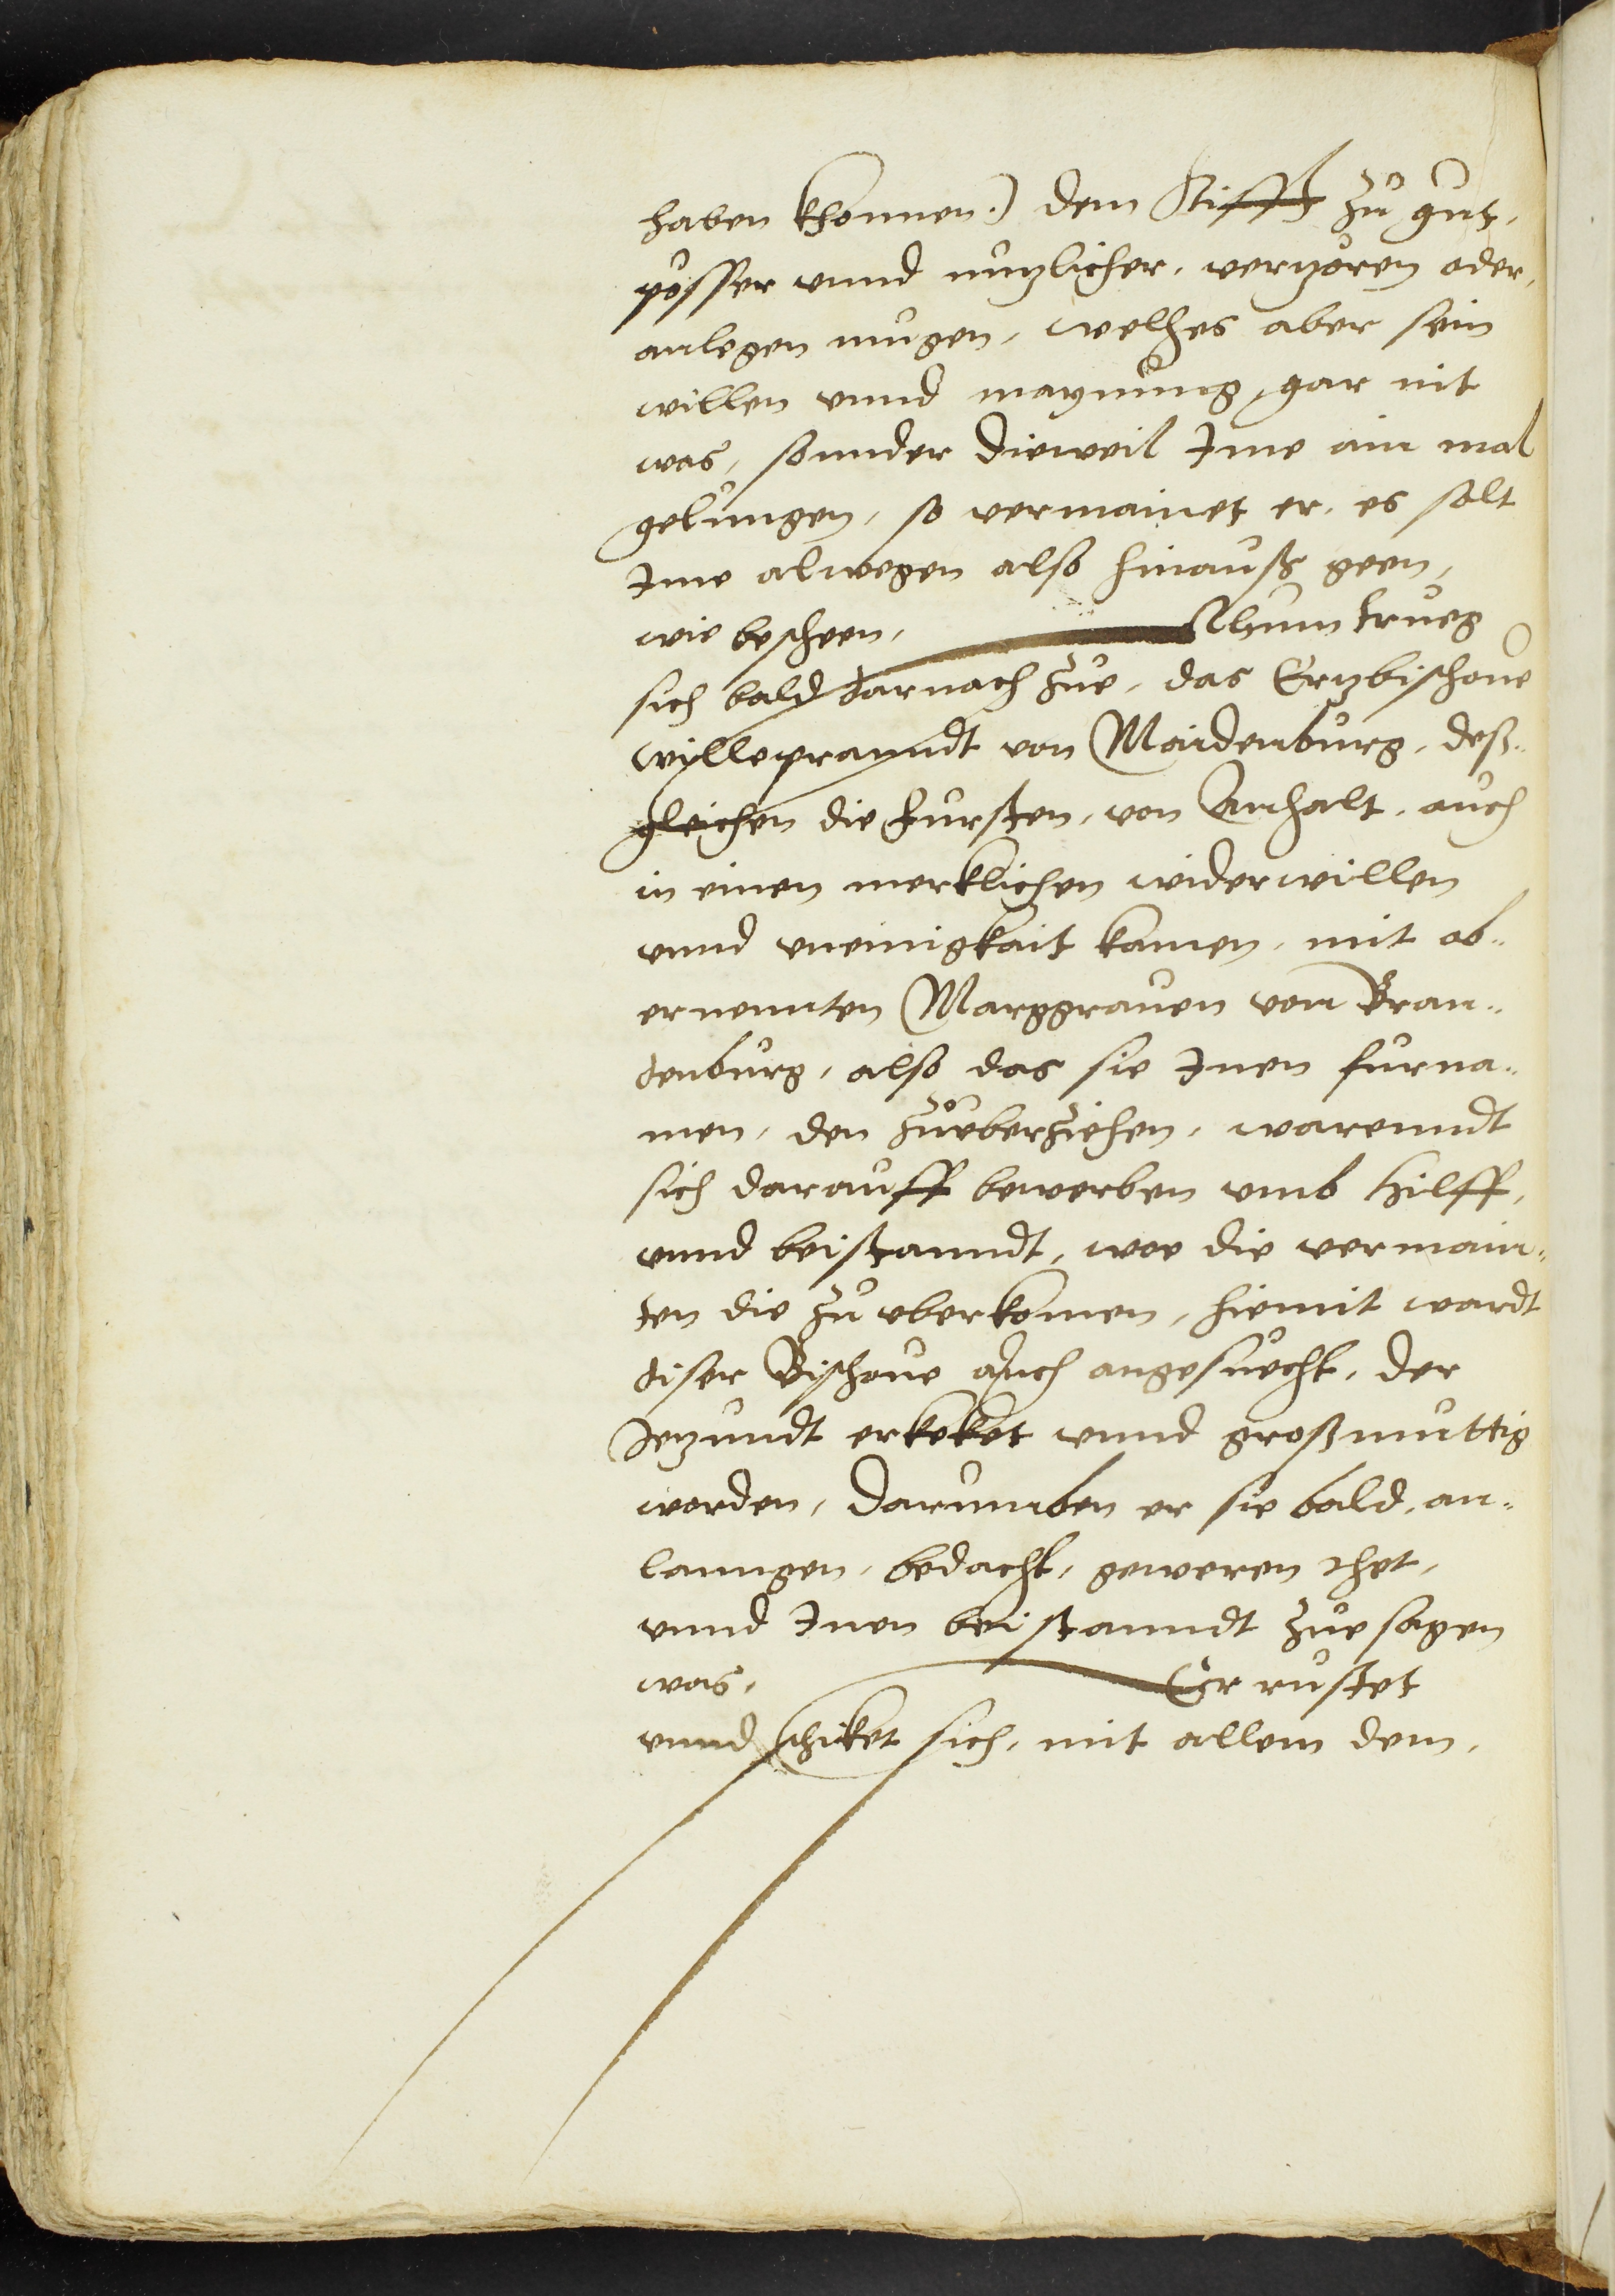 haben khonnen.) dem Stifft zu gut,
pesser vnnd nuzlicher, verzören oder,
anlegen mugen, welhes aber sein
willen vnnd maynung, gar nit
was, sonnder dieweil Ime ain mal
gelungen, so vermainet er, es solt
Ime alwegen also hinauß geen,
wie bescheen, Nhun trueg
sich bald darnach zue, das Erzbischoue
Wyllepranndt von Maidenburg, deß„
gleichen die Fursten, von Anhalt, auch
in einen merklichen widerwillen
vnnd vneinigkait kamen, mit ob„
ernennten Marggrauen von Bran„
denburg, also das sie Inen furna„
men, den züeberziehen, warenndt
sich darauff bewerben vmb hilff,
vnnd beistanndt, woe die vermain„
ten die zu vberkomen, hiemit wardt
diser Bischoue auch angesuecht, der
Jezundt erkeket vnnd großmuttig
worden, darumben er sie bald, an„
lanngen, bedacht, geweren thet,
vnnd Inen beistanndt zuesagen
was, Er rustet
vnnd schiket sich, mit allem dem,